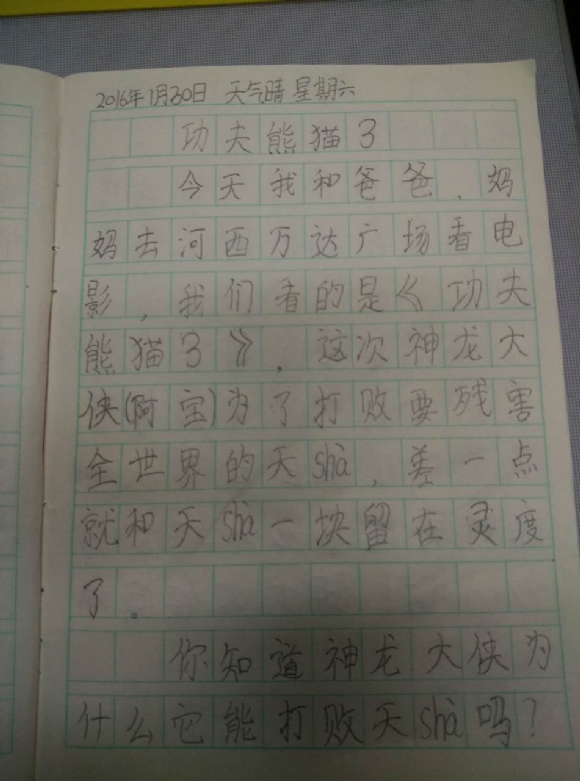 2016年1月30日 天气晴 星期六
功夫熊猫3
今天我和爸爸、妈
妈去河西万达广场看电
影，我们看的是《功夫
熊猫3》。这次神龙大
侠(阿宝)为了打败要残害
全世界的天shà，差一点
就和天shà一块留在灵度
了。
你知道神龙大侠为
什么它能打败天shà吗？